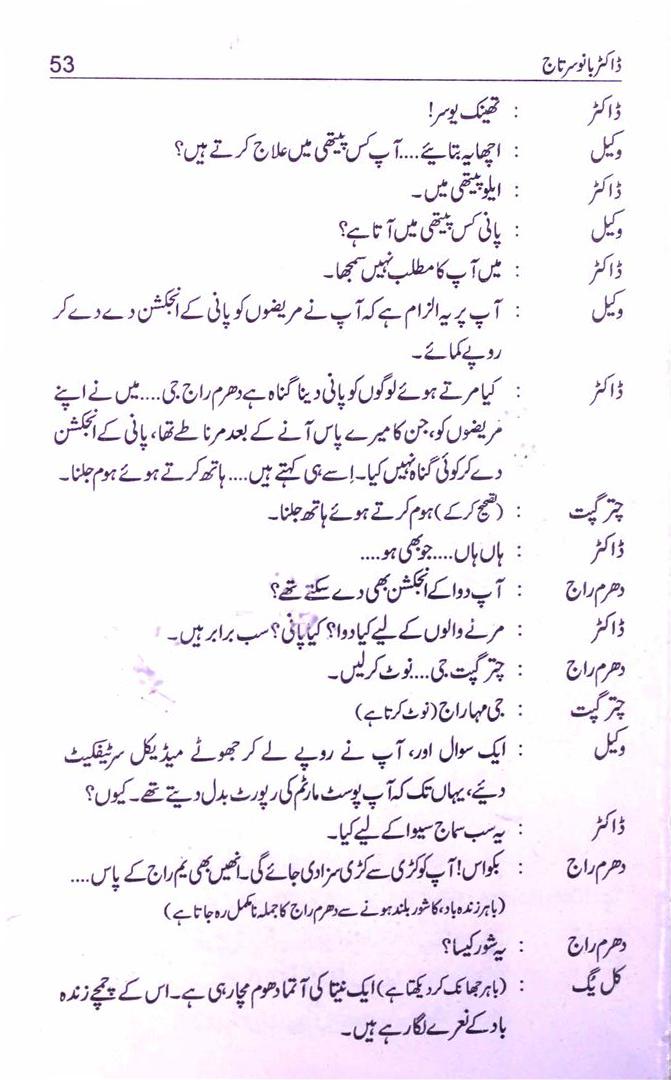 ڈاکٹر بانو سرتاج 53
ڈاکٹر : تھینک یو سر!
وکیل : اچھا یہ بتائیے....آپ کس پیتھی میں علاج کرتے ہیں؟
ڈاکٹر : ایلو پیتھی میں۔
وکیل : پانی کس پیتھی میں آتا ہے؟
ڈاکٹر : میں آپ کا مطلب نہیں سمجھا۔
وکیل : آپ پر یہ الزام ہے کہ آپ نے مریضوں کو پانی کے انجکشن دے دے کر
روپے کمائے۔
ڈاکٹر : کیا مرتے ہوئے لوگوں کو پانی دینا گناہ ہے دھرم راج جی....میں نے اپنے
مریضوں کو، جن کا میرے پاس آنے کے بعد مرنا طے تھا، پانی کے انجکشن
دے کر کوئی گناہ نہیں کیا۔ اِسے ہی کہتے ہیں.... ہاتھ کرتے ہوئے ہوم جلنا۔
چترگپت : (تصحیح کر کے) ہوم کرتے ہوئے ہاتھ جلنا۔
ڈاکٹر : ہاں ہاں....جو بھی ہو....
دھرم راج : آپ دوا کے انجکشن بھی دے سکتے تھے؟
ڈاکٹر : مرنے والوں کے لیے کیا دوا؟ کیا پانی؟ سب برابر ہیں۔
دھرم راج : چترگپت جی....نوٹ کر لیں۔
چترگپت : جی مہاراج (نوٹ کرتا ہے)
وکیل : ایک سوال اور، آپ نے روپے لے کر جھوٹے میڈیکل سرٹیفکیٹ
دیئے، یہاں تک کہ آپ پوسٹ مارٹم کی رپورٹ بدل دیتے تھے۔ کیوں؟
ڈاکٹر : یہ سب سماج سیوا کے لیے کیا۔
دھرم راج : بکواس! آپ کو کڑی سے کڑی سزا دی جائے گی۔ انھیں بھی یم راج کے پاس....
(باہر زندہ باد، کا شور بلند ہونے سے دھرم راج کا جملہ نامکمل رہ جاتا ہے)
دھرم راج : یہ شور کیسا؟
کل یگ : (باہر جھانک کر دیکھتا ہے) ایک نیتا کی آتما دھوم مچا رہی ہے۔ اس کے چمچے زندہ
باد کے نعرے لگا رہے ہیں۔